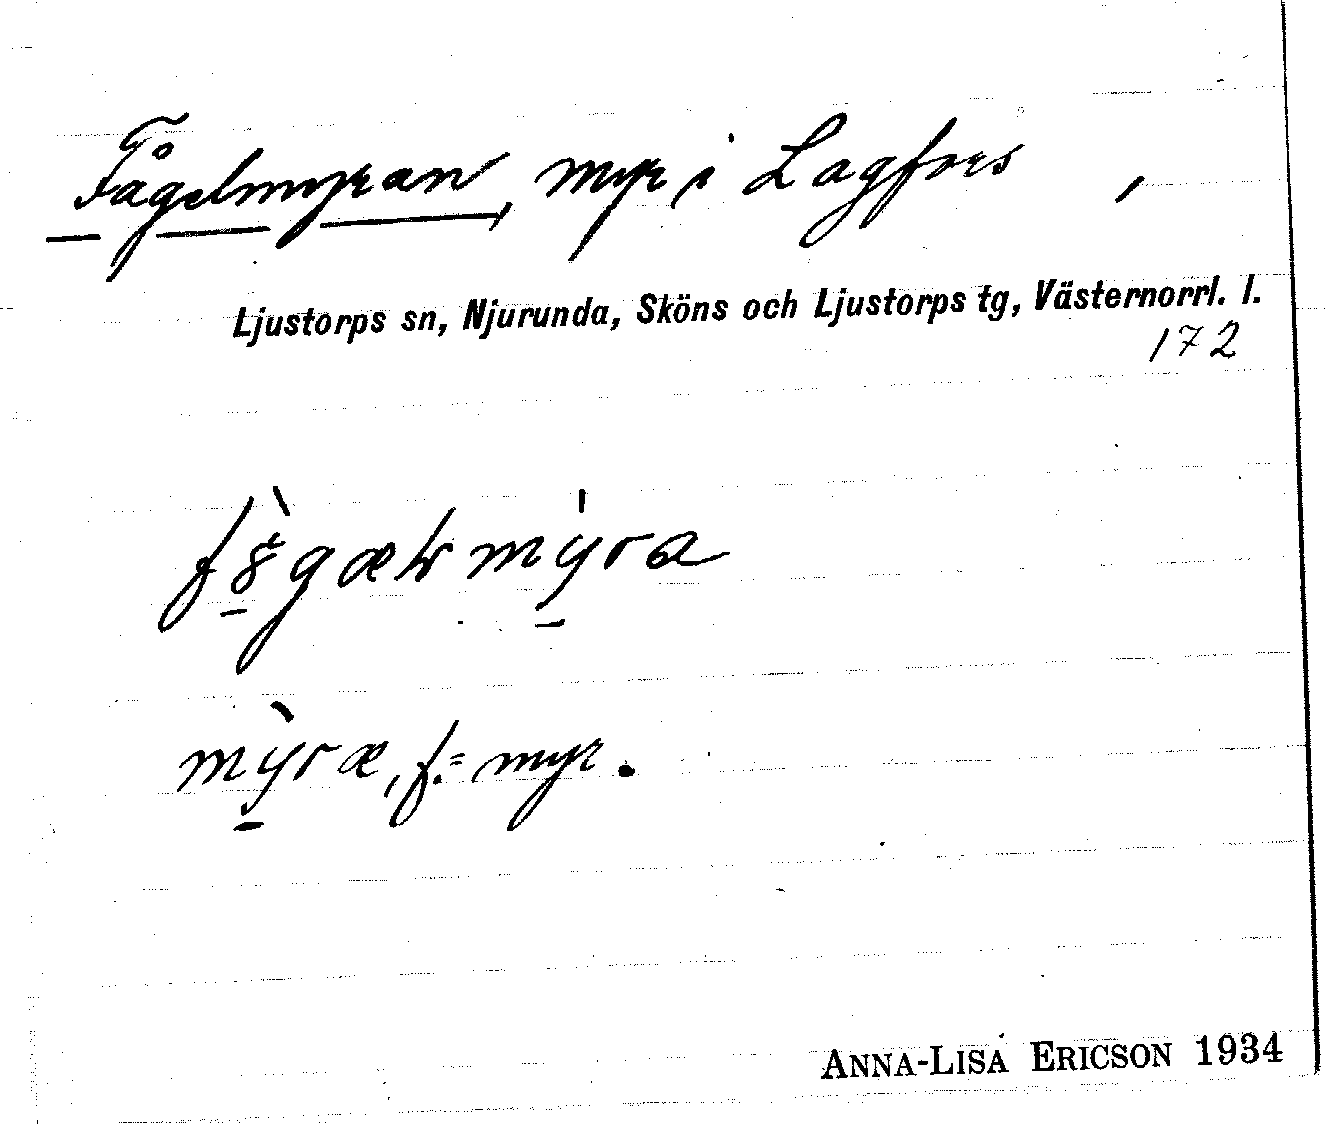 Fågelmyran, myr i Lagfors ,
Ljustorps sn, Njurunda, Sköns och Ljustorps tg, Västernorrl. l.
172
mỳ̱ræ, f. = myr.
ANNA-LISA ERICSON 1934